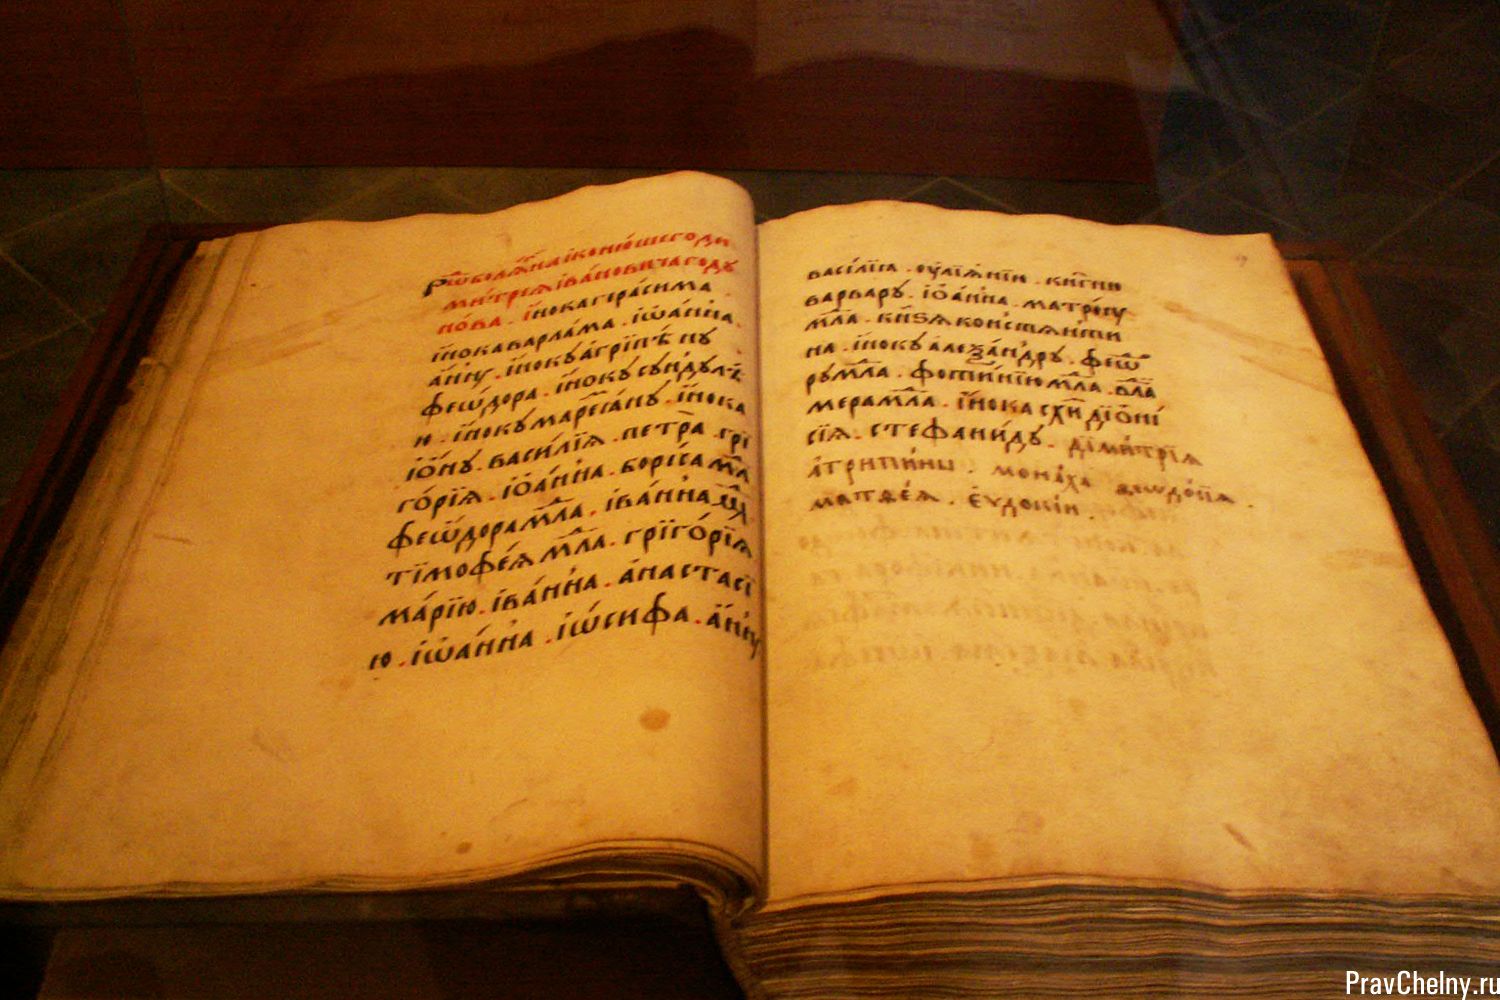 Рѡ болѧ́рина і конюшего ди
митреѧ іва́новича году
но́ва. и҆нока гера́сима.
и҆нока варла́ма. іѡа́нна.
а҆нну. и҆ноку а҆грїпѣ́ну
феѡ́дора. и҆ноку сунду́лѣ
ю. и҆ноку маремїа́ну. и҆нока
іѻ́ну. васи́лїѧ. петра. грї
го́рїѧ. іѻа́нна. бори́са мл҃а
феѡ́дора мл҃а. іва́нна
тїмофе́ѧ мл҃а. грїго́рїѧ
ма́рїю. іва́нна. а҆настасї
ю. іѡа́нна. іѡ́сифа. а҆нну
васи́лїѧ. ѹ҆лїѧнїю. кн҃гню
варвару. іѻа́нна. матре́ну
мл҃а. кн҃ѕѧ констѧнти
на. и҆ноку алеѯа́ндру. феѡ
ру мл҃а. фоти́нїю мл҃а. вла
мера мл҃а. и҆нока схи дїѻнї
сїѧ. стефани́ду. дїми́трїѧ
а҆трипи́ны. мона́ха феѡдо́сїѧ.
матѳе́ѧ. є҆ѵдокїи.
PravChelny.ru